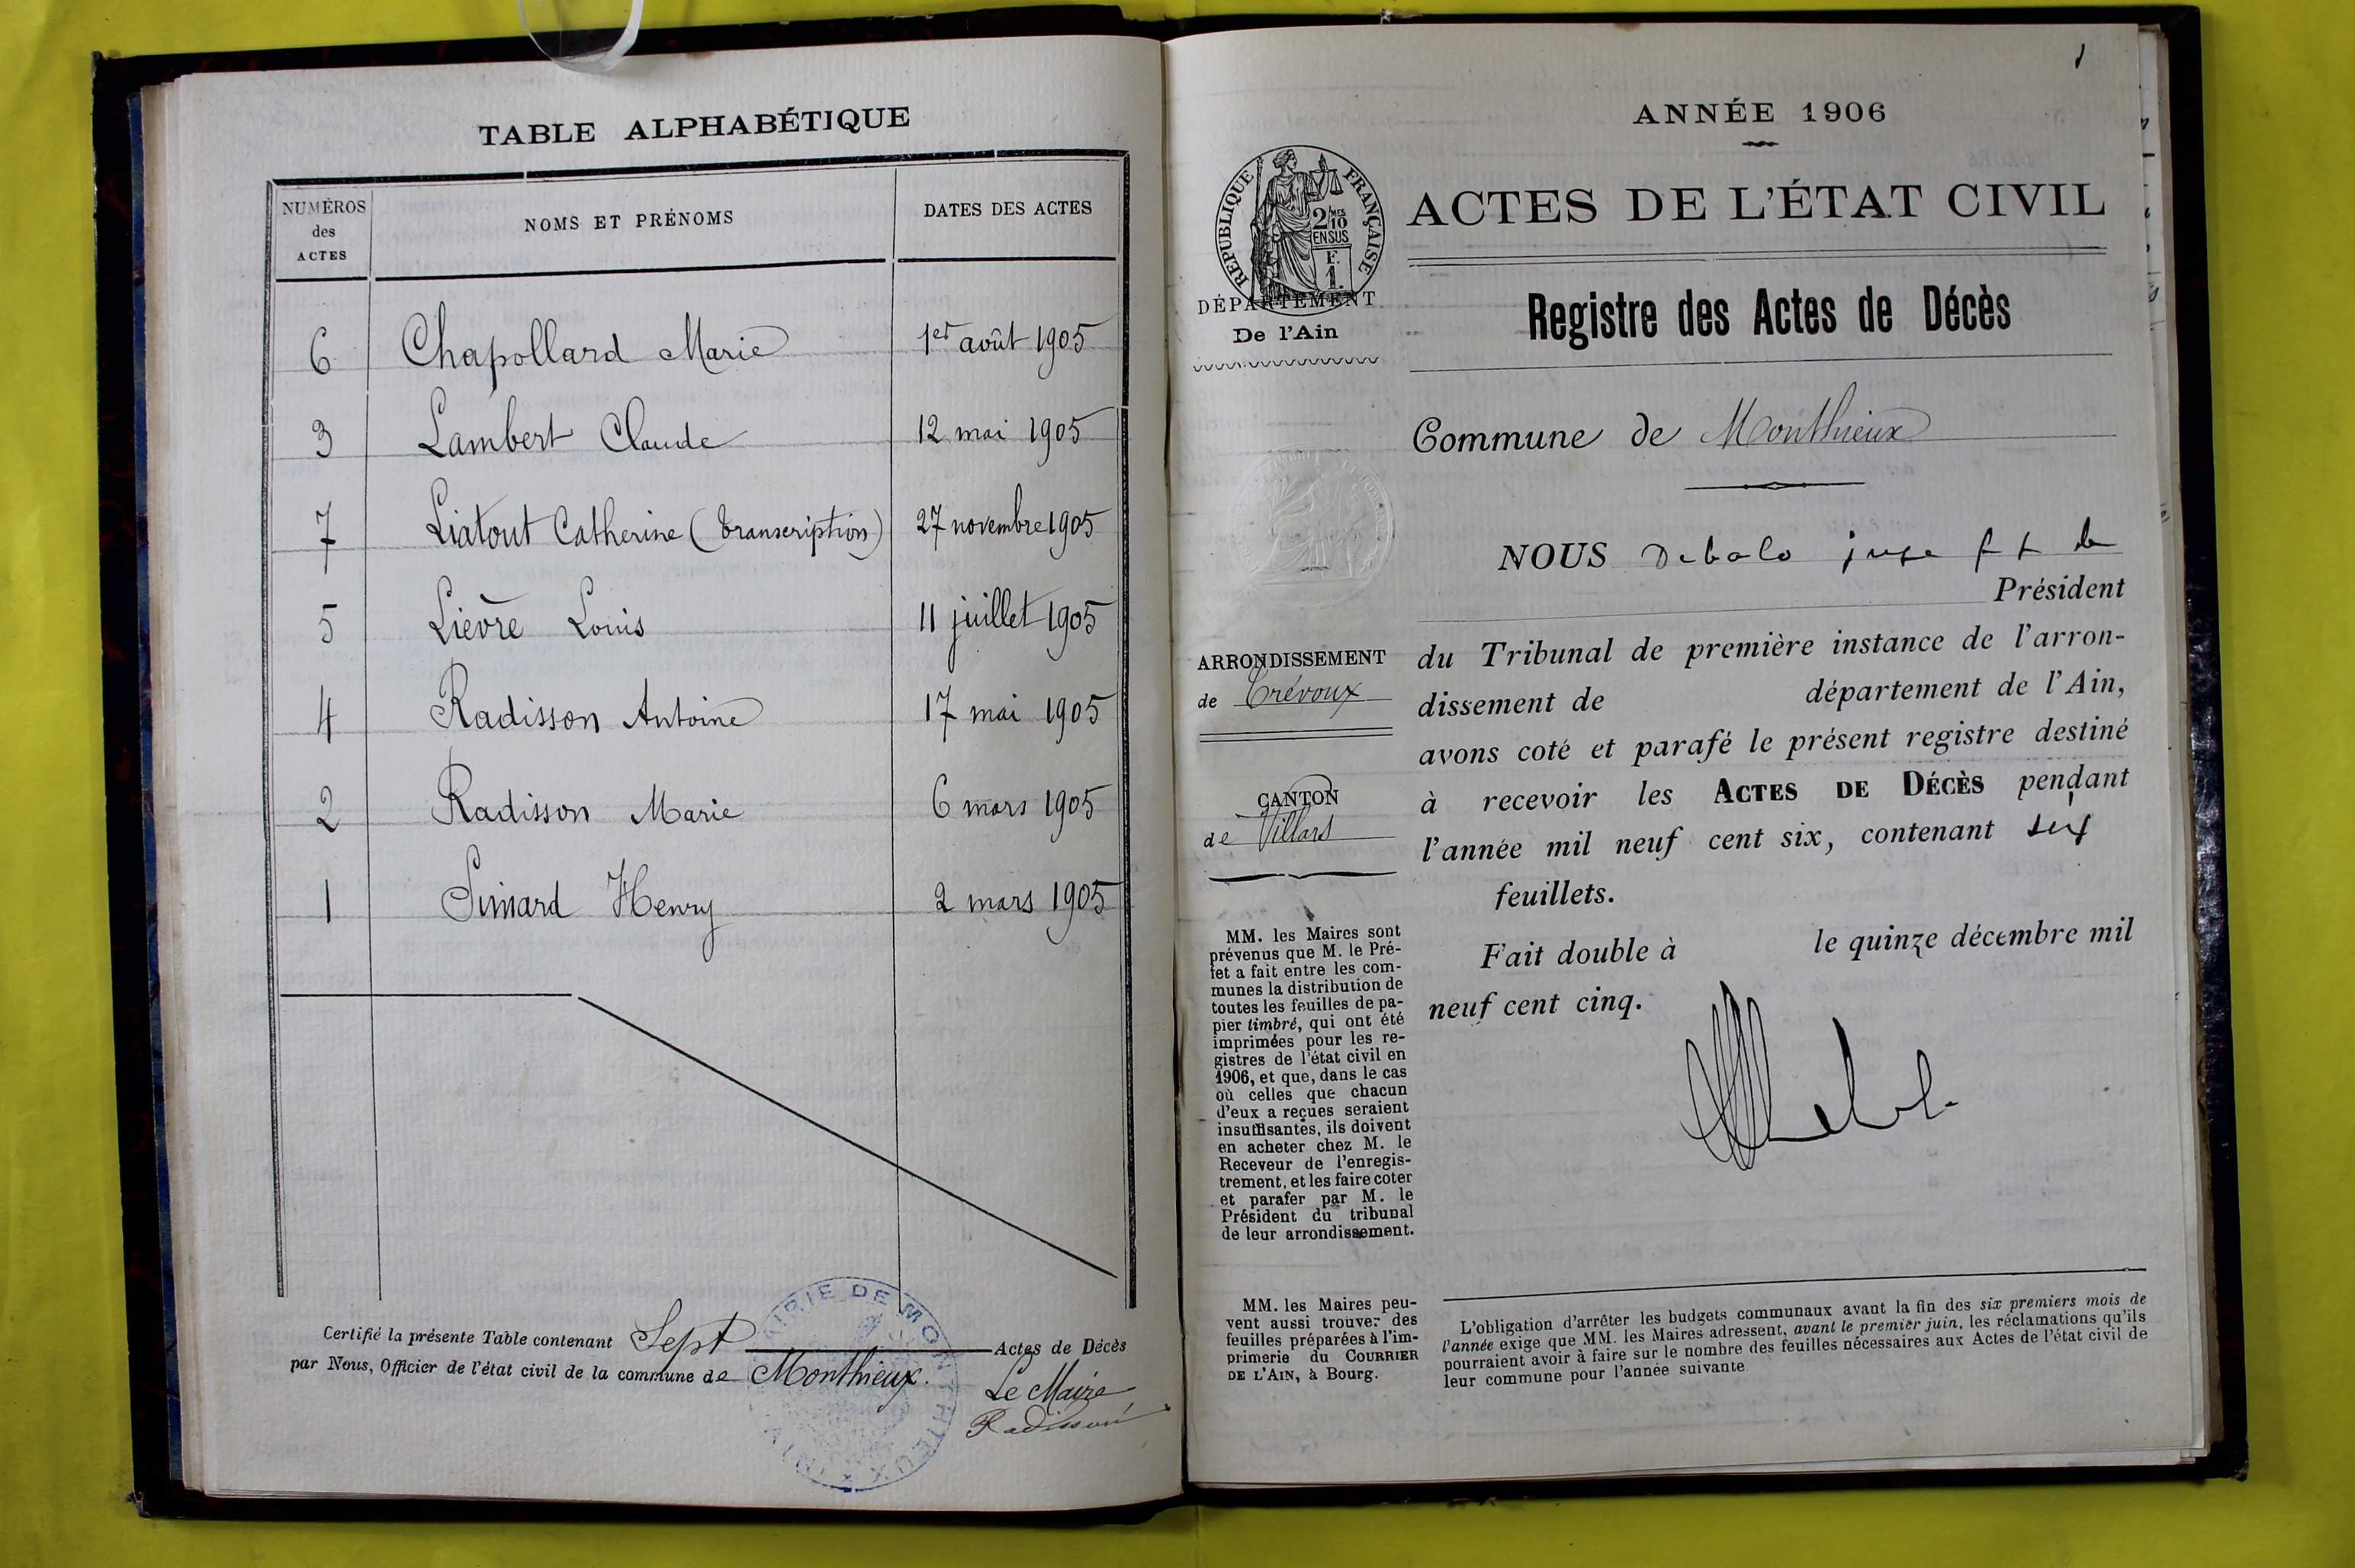 TABLE ALPHABÉTIQUE
NUMÉROS des ACTES NOMS ET PRÉNOMS DATES DES ACTES
6 Chapollard Marie 1er août 1905
3 Lambert Claude 12 mai 1905
7 Liatout Catherine (transcription) 27 novembre 1905
5 Lièvre Louis 11 juillet 1905
4 Radisson Antoine 17 mai 1905
2 Radisson Marie 6 mars 1905
1 Simard Henry 2 mars 1905
Certifié la présente Table contenant Sept Actes de Décès
par Nous, Officier de l'état civil de la commune de Monthieux.
Le Maire
Radisson
MAIRIE DE MONTHIEUX
AIN
1
ANNÉE 1906
RÉPUBLIQUE FRANÇAISE
2/10 MES
EN SUS
F.
1.
ACTES DE L'ÉTAT CIVIL
DÉPARTEMENT
De l'Ain
Registre des Actes de Décès
Commune de Monthieux
NOUS juge
Président
ARRONDISSEMENT
de Trévoux
CANTON
de Villars
du Tribunal de première instance de l'arron-
dissement de département de l'Ain,
avons coté et parafé le présent registre destiné
à recevoir les ACTES DE DÉCÈS pendant
l'année mil neuf cent six, contenant
feuillets.
Fait double à le quinze décembre mil
neuf cent cinq.
MM. les Maires sont
prévenus que M. le Pré-
fet a fait entre les com-
munes la distribution de
toutes les feuilles de pa-
pier timbré, qui ont été
imprimées pour les re-
gistres de l'état civil en
1906, et que, dans le cas
où celles que chacun
d'eux a reçues seraient
insuffisantes, ils doivent
en acheter chez M. le
Receveur de l'enregis-
trement, et les faire coter
et parafer par M. le
Président du tribunal
de leur arrondissement.
MM. les Maires peu-
vent aussi trouver des
feuilles préparées à l'im-
primerie du COURRIER
DE L'AIN, à Bourg.
L'obligation d'arrêter les budgets communaux avant la fin des six premiers mois de
l'année exige que MM. les Maires adressent, avant le premier juin, les réclamations qu'ils
pourraient avoir à faire sur le nombre des feuilles nécessaires aux Actes de l'état civil de
leur commune pour l'année suivante